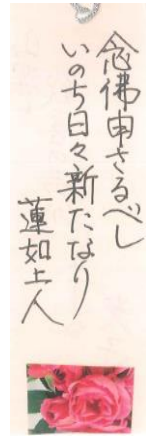 念佛申さるべし
いのち日々新たなり
蓮如上人